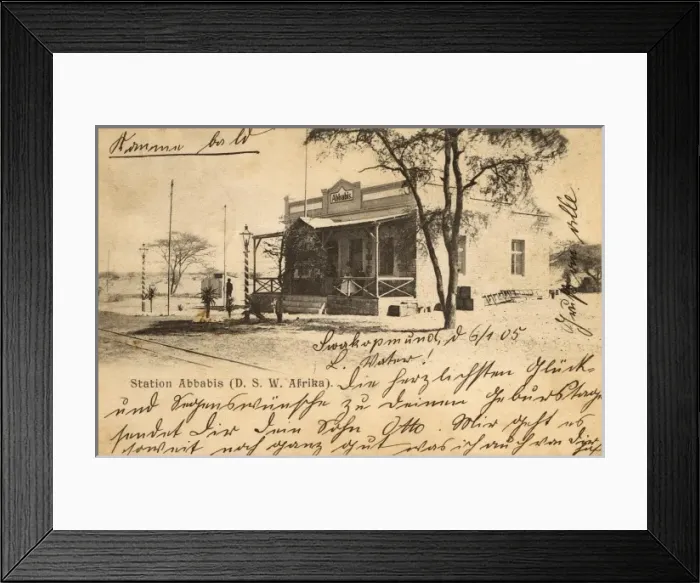 Komme bald
Abbabis
Swakopmund, d 6/1 05
L. Vater!
Station Abbabis (D. S. W. Afrika). Die herzlichsten Glück-
und Segenswünsche zu Deinem Geburtstage
sendet Dir Dein Sohn Otto. Mir geht es
soweit noch ganz gut was ich auch von Dir